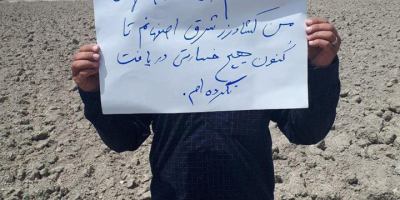 من کشاورز شرق اصفهانم تا
کنون هیچ خسارتی دریافت
نکرده ام.